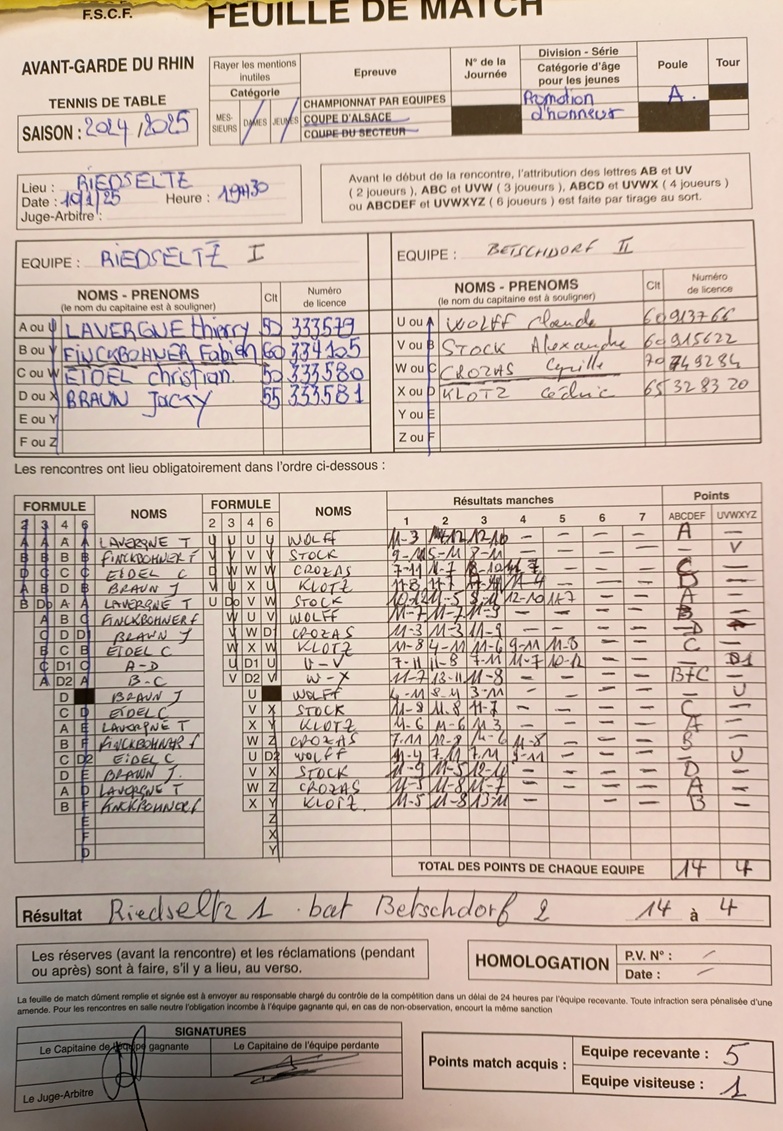 F.S.C.F.
FEUILLE DE MATCH
AVANT-GARDE DU RHIN
TENNIS DE TABLE
SAISON : 2024 / 2025
Rayer les mentions inutiles
Catégorie
MES-SIEURS DAMES JEUNES
Epreuve
CHAMPIONNAT PAR EQUIPES
COUPE D'ALSACE
COUPE DU SECTEUR
N° de la Journée
Division - Série
Catégorie d'âge pour les jeunes
Promotion d'honneur
Poule
A.
Tour
Lieu : RIEDSELTZ
Date : 10/1/25 Heure : 19H30
Juge-Arbitre :
Avant le début de la rencontre, l'attribution des lettres AB et UV
( 2 joueurs ), ABC et UVW ( 3 joueurs ), ABCD et UVWX ( 4 joueurs )
ou ABCDEF et UVWXYZ ( 6 joueurs ) est faite par tirage au sort.
EQUIPE : RIEDSELTZ I
NOMS - PRENOMS
(le nom du capitaine est à souligner)
Clt
Numéro de licence
A ou U LAVERGNE thierry 50 333579
B ou V FINCKBOHNER Fabien 60 334105
C ou W EIDEL christian. 50 333580
D ou X BRAUN Jacky 55 333581
E ou Y
F ou Z
EQUIPE : BETSCHDORF II
NOMS - PRENOMS
(le nom du capitaine est à souligner)
Clt
Numéro de licence
U ou A WOLFF Claude 60 913766
V ou B STOCK Alexandre 60 915622
W ou C CROZAS Cyrille 70 749284
X ou D KLOTZ Cédric 65 328320
Y ou E
Z ou F
Les rencontres ont lieu obligatoirement dans l'ordre ci-dessous :
FORMULE NOMS FORMULE NOMS Résultats manches Points
2 3 4 6 2 3 4 6 1 2 3 4 5 6 7 ABCDEF UVWXYZ
A A A A LAVERGNE T U U U U WOLFF 11-3 12-10 – – – – A –
B B B B FINCKBOHNER F V V V V STOCK 9-11 5-11 8-11 – – – – – V
C C C EIDEL C W W W CROZAS 7-11 11-7 – – – C –
A B D B BRAUN J U X U KLOTZ 11-8 11-7 11-4 – – –
B Do A A LAVERGNE T U Do V W STOCK 10-12 11-5 9-11 12-10 11-7 – – A –
A B C FINCKBOHNER F W U V WOLFF 11-7 11-7 11-9 – – – – B –
C D D1 BRAUN J V W D1 CROZAS 11-3 11-3 11-9 – – – – D
B C B EIDEL C W X W KLOTZ 11-8 4-11 11-6 9-11 11-8 – – C –
C D1 C A-D U D1 U U-V 7-11 11-8 7-11 11-7 10-12 – – – D1
A D2 A B-C V D2 V W-X 11-7 13-11 11-8 – – – – B+C –
D BRAUN J U WOLFF 4-11 8-11 3-11 – – – – – U
C D EIDEL C V X STOCK 11-8 11-8 11-7 – – – – C –
A E LAVERGNE T X Y KLOTZ 11-6 11-6 11-3 – – – – A –
B F FINCKBOHNER F W Z CROZAS 7-11 11-6 11-8 – – – B –
C D2 EIDEL C U D2 WOLFF 11-4 7-11 7-11 9-11 – – – – U
D E BRAUN J. V X STOCK 11-9 11-5 – – – – D –
A D LAVERGNE T W Z CROZAS 11-5 11-8 11-7 – – – – A –
B F FINCKBOHNER F X Y KLOTZ. 11-5 11-8 13-11 – – – – B –
E Z
F X
D Y
TOTAL DES POINTS DE CHAQUE EQUIPE 14 4
Résultat Riedseltz 1 bat Betschdorf 2 14 à 4
Les réserves (avant la rencontre) et les réclamations (pendant
ou après) sont à faire, s'il y a lieu, au verso.
HOMOLOGATION
P.V. N° :
Date :
La feuille de match dûment remplie et signée est à envoyer au responsable chargé du contrôle de la compétition dans un délai de 24 heures par l'équipe recevante. Toute infraction sera pénalisée d'une
amende. Pour les rencontres en salle neutre l'obligation incombe à l'équipe gagnante qui, en cas de non-observation, encourt la même sanction
SIGNATURES
Le Capitaine de l'équipe gagnante Le Capitaine de l'équipe perdante
Le Juge-Arbitre
Points match acquis :
Equipe recevante : 5
Equipe visiteuse : 1